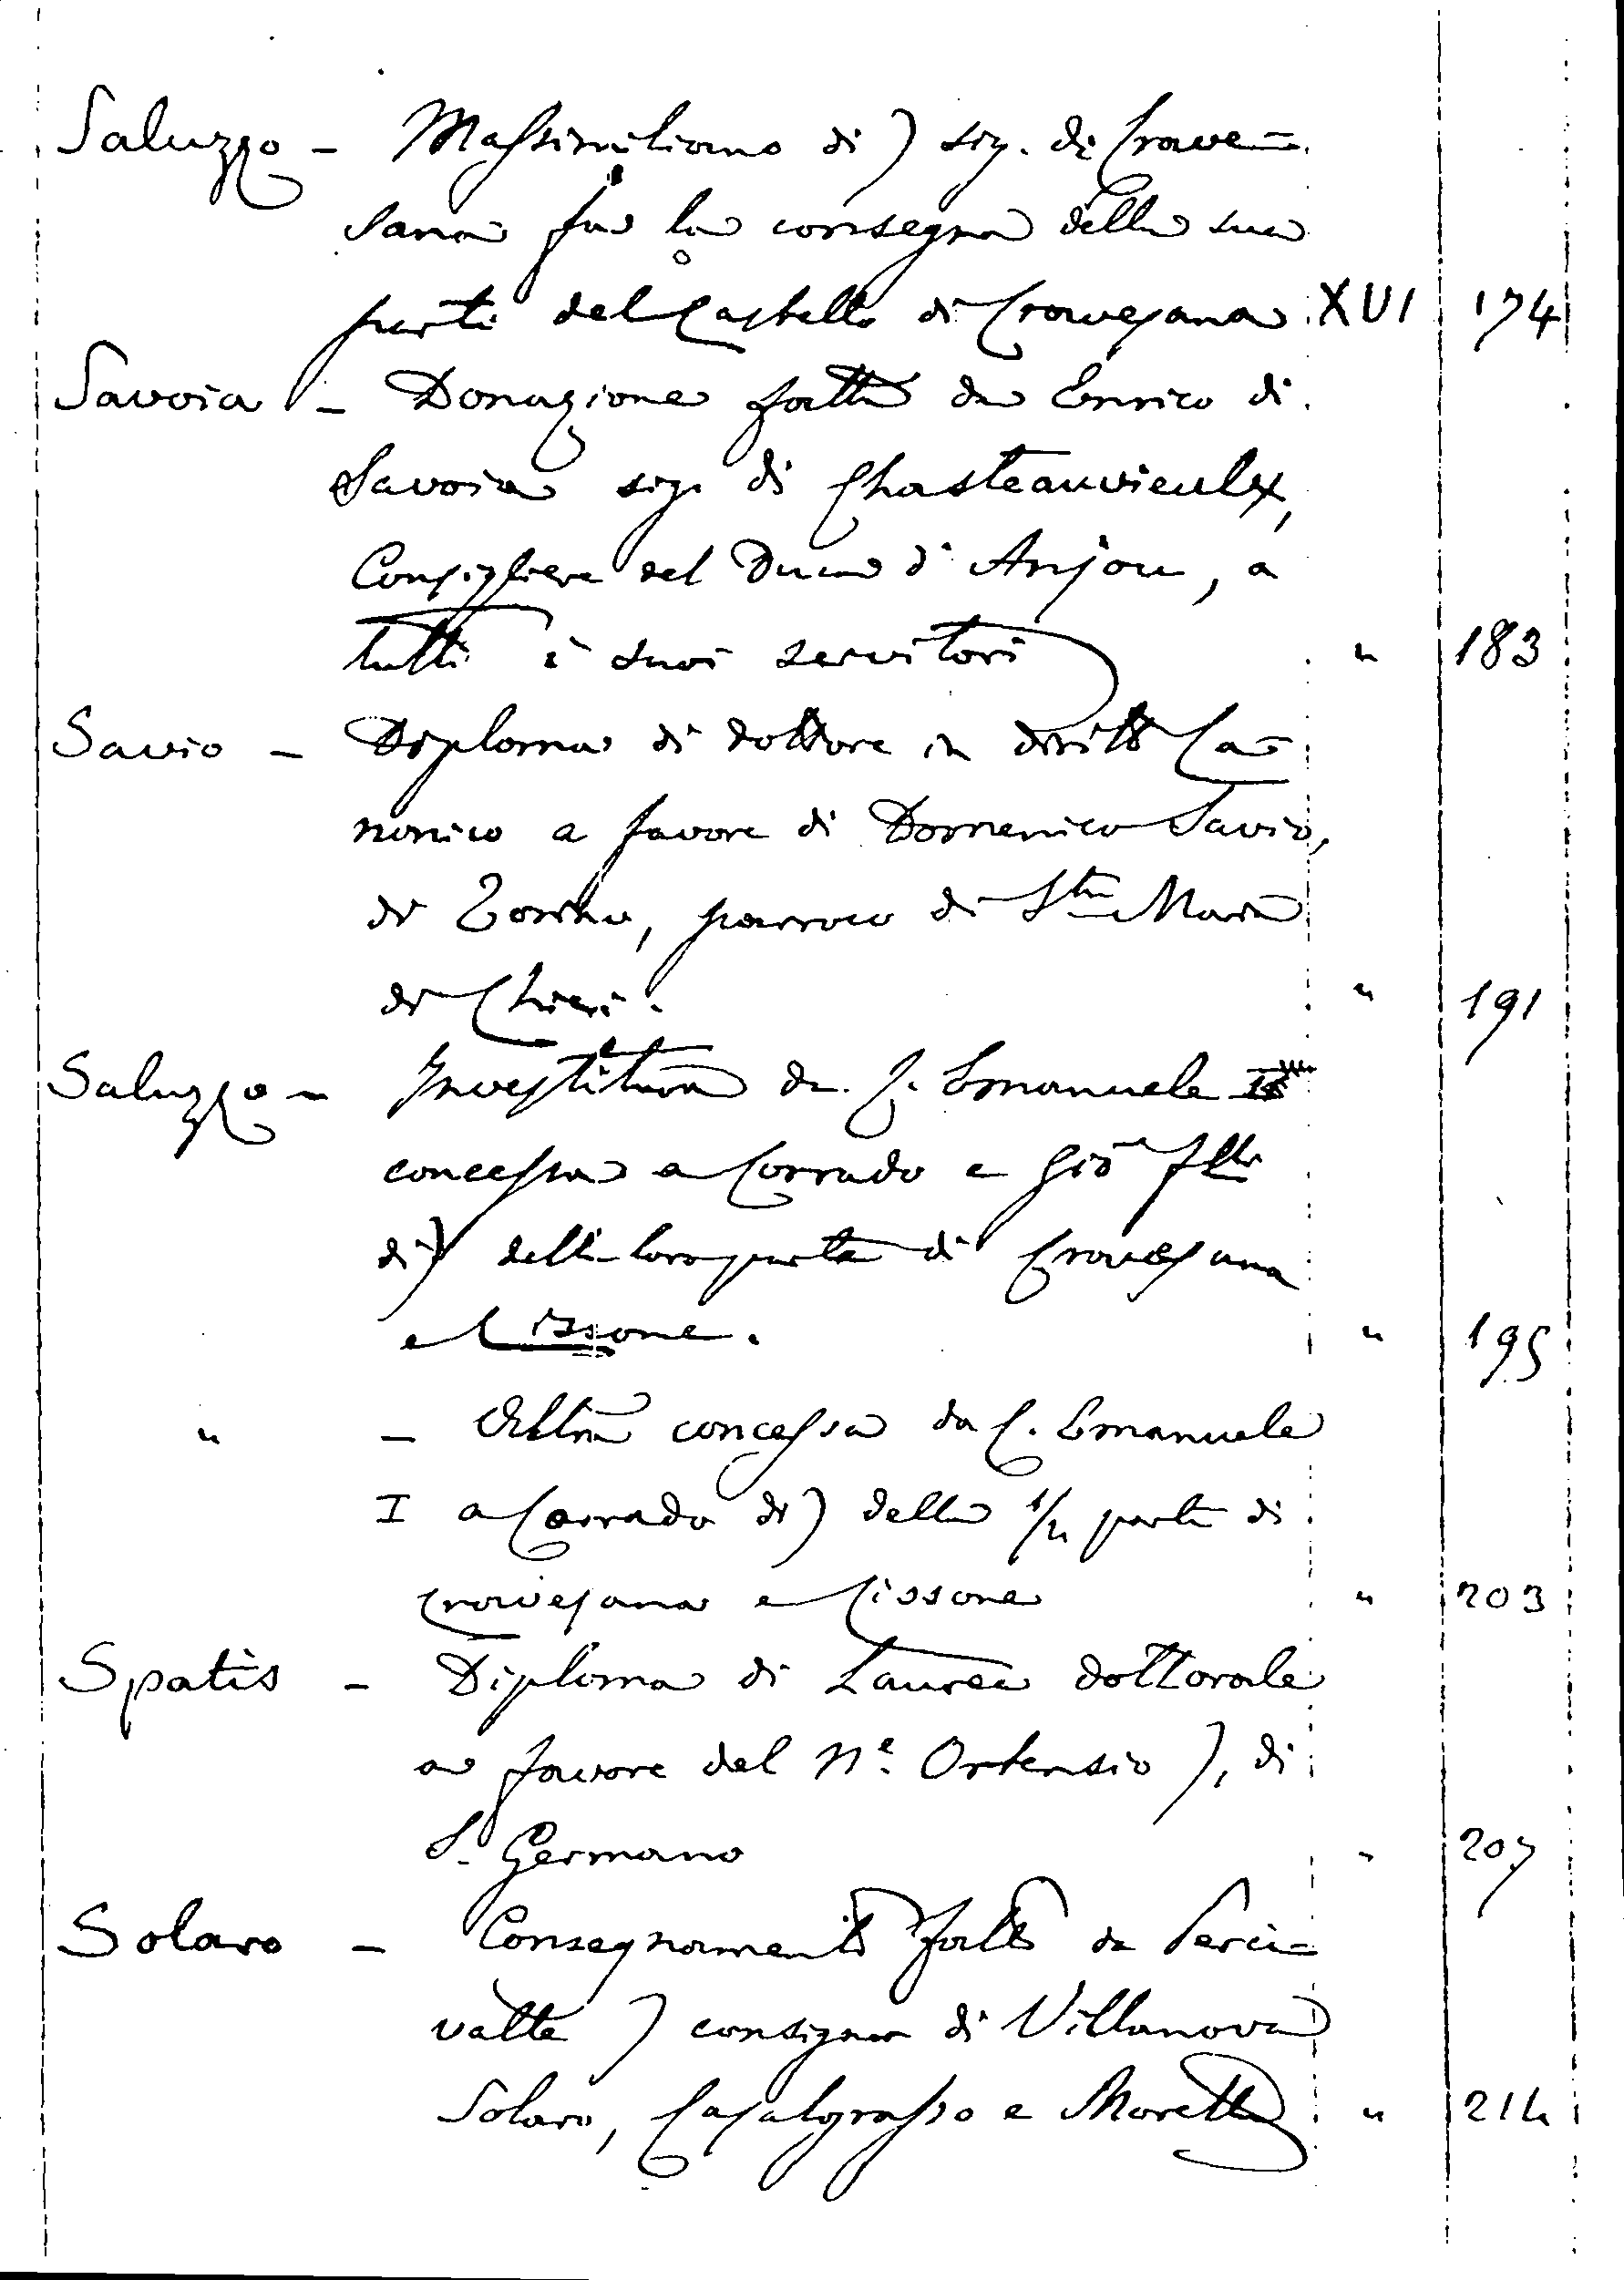 Saluzzo - Massimiliano di ) sig. di Crave=
sana fa la consegna della sua
parte del Castello di Cravesana XVI 174
Savoia - Donazione fatta da Enrico di
Savoia sig. di Chasteauvieulx,
Consigliere del Duca d'Anjou, a
tutti i suoi servitori " 183
Savio - Diploma di dottore in diritto Ca=
nonico a favore di Domenico Savio,
di Torino, parroco di Sta Maria
di Chieri. " 191
Saluzzo - Investitura da C. Emanuele
concessa a Corrado e Gio flli
di) della loro parte di Cravesana
e Cissone. " 195
" - Altra concessa da C. Emanuele
I a Corrado di) della 1/2 parte di
Cravesana e Cissone " 203
Spatis - Diploma di Laurea dottorale
a favore del Ne. Ortensio ), di
S. Germano " 207
Solaro - Consegnamento fatto da Perci=
valle ) consignor di Villanova
Solaro, Casalgrasso e Moretta " 214